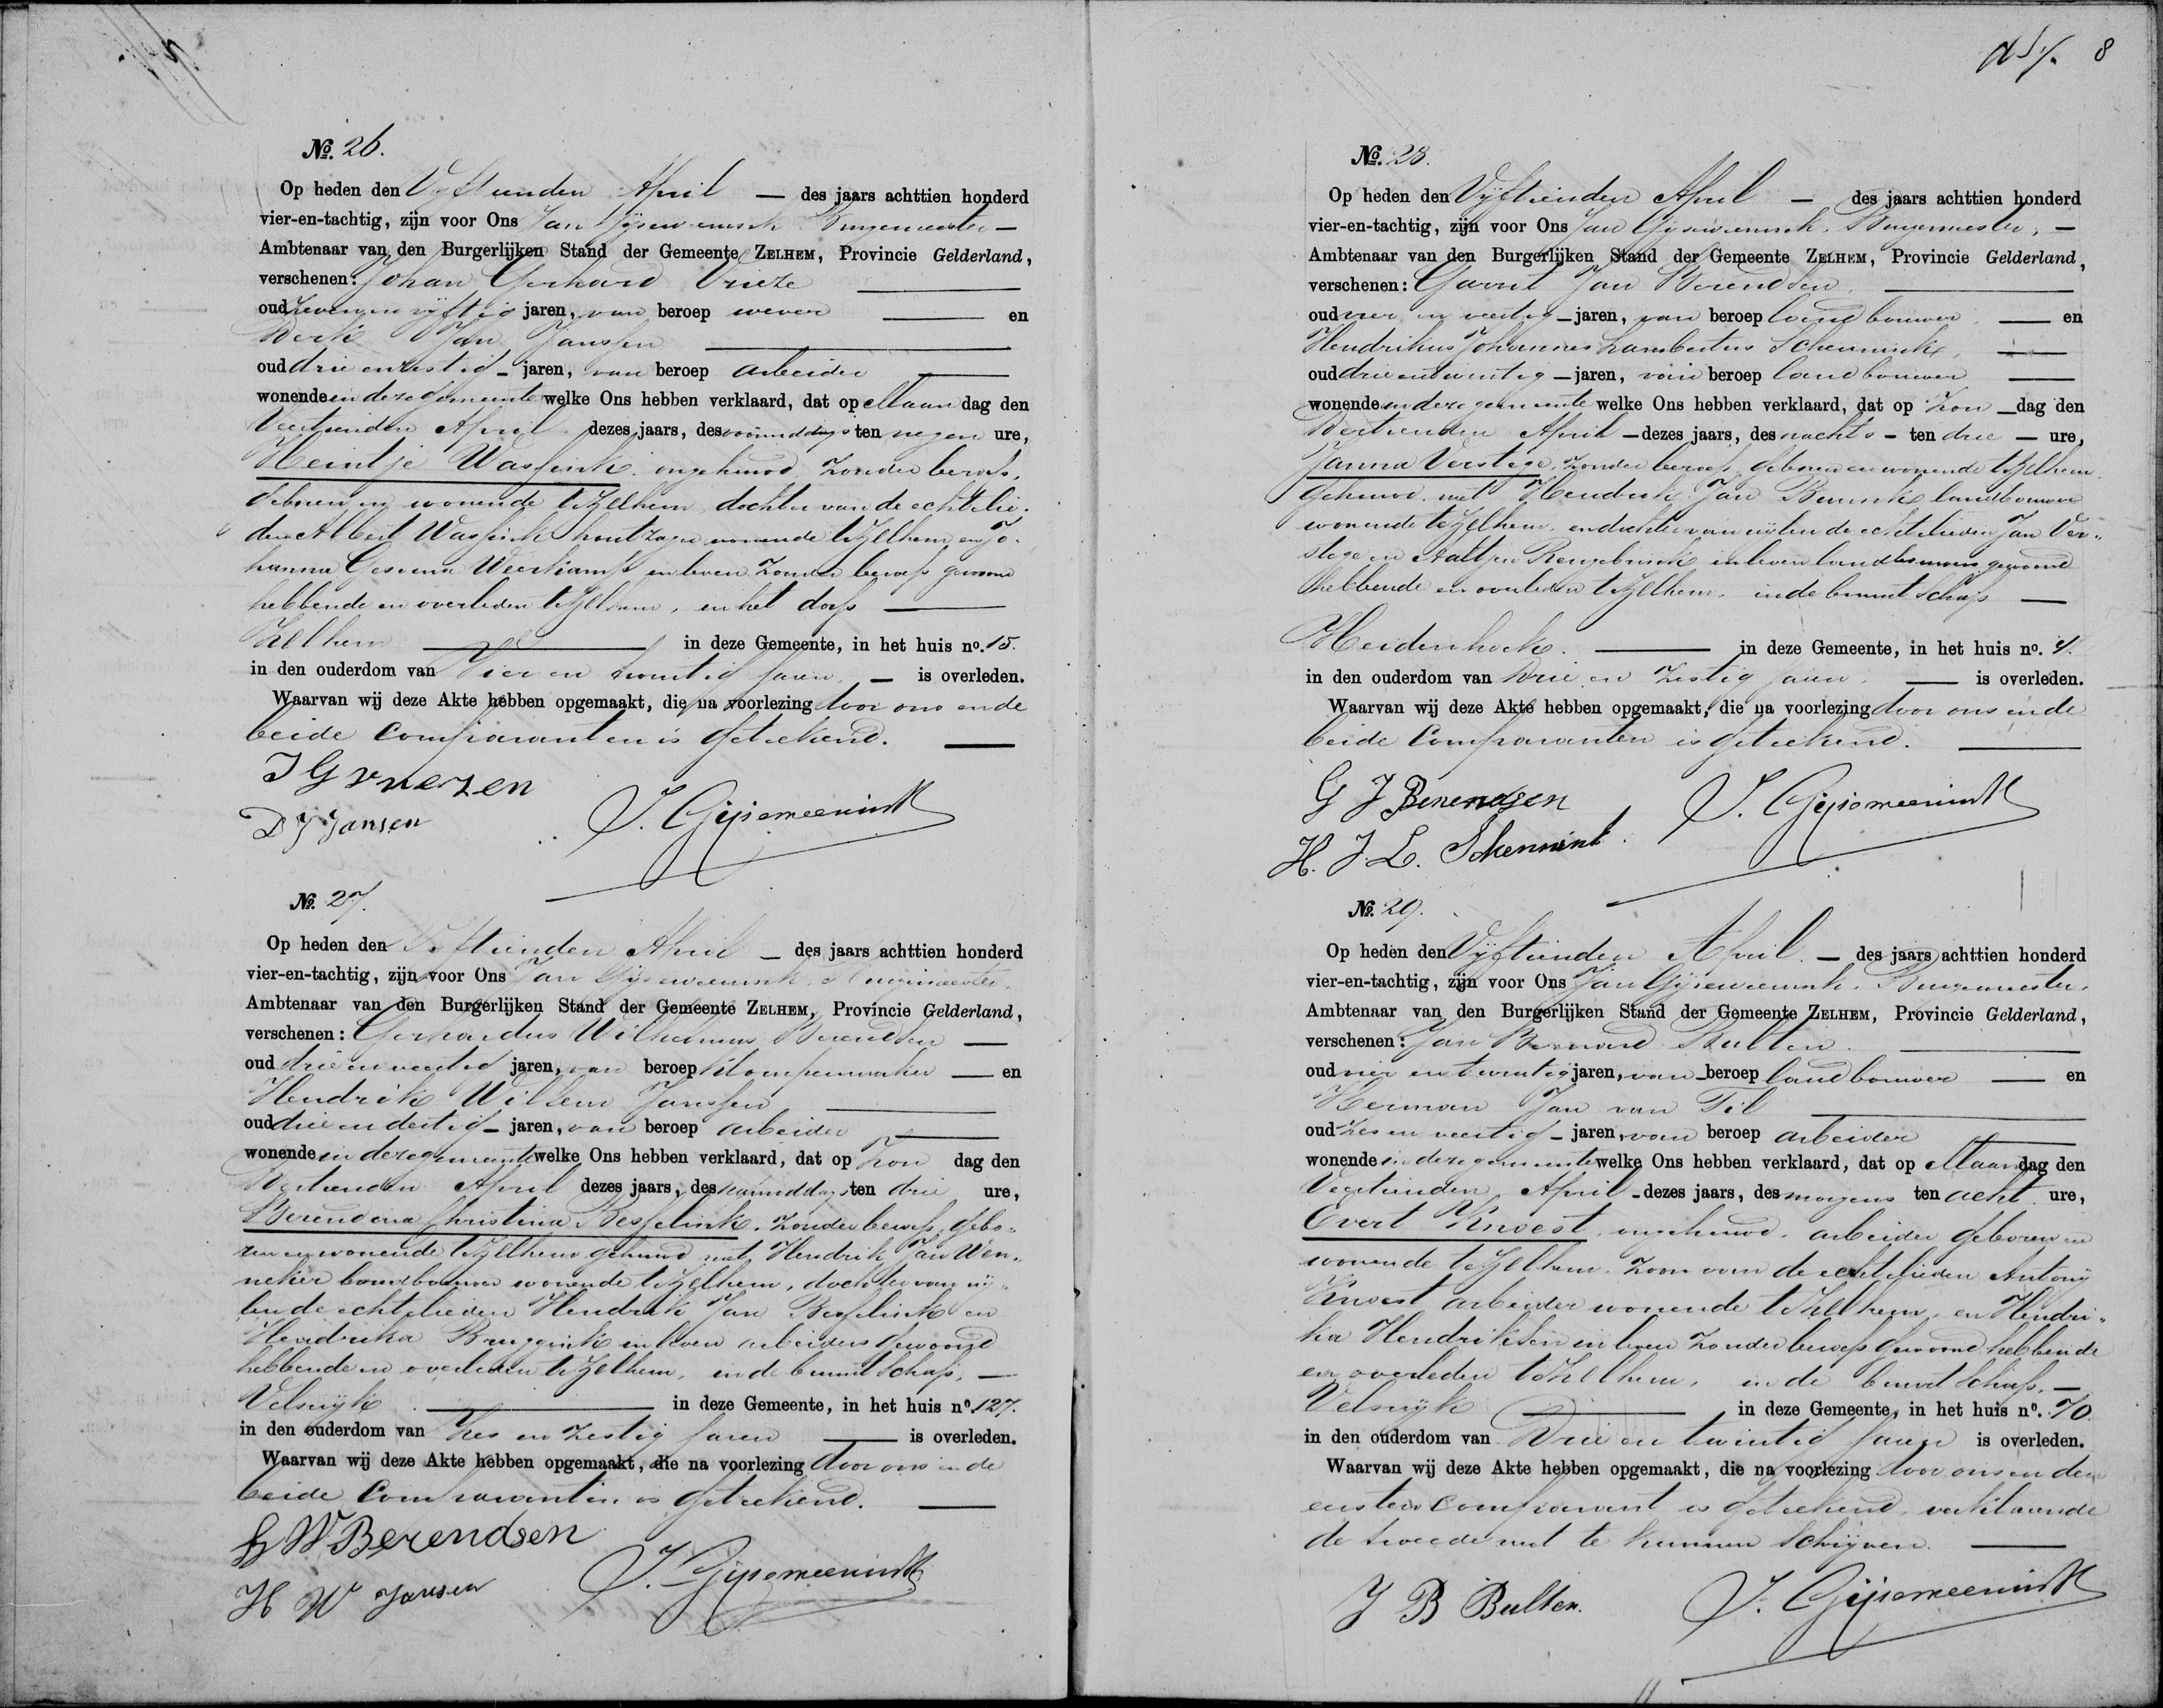 No. 26.
Op heden den Vyftienden April — des jaars achttien honderd
vier-en-tachtig, zijn voor Ons Jan Gijseweenink Burgemeester —
Ambtenaar van den Burgerlijken Stand der Gemeente ZELHEM, Provincie Gelderland,
verschenen: Johan Gerhard Vrieze —
oud zevenenvijftig jaren, van beroep wever — en
Derk Jan Janssen —
oud drie en zestig - jaren, van beroep arbeider —
wonende in deze gemeente welke Ons hebben verklaard, dat op Maandag den
Veertienden April dezes jaars, des voormiddags ten negen ure,
Heintje Wassink ongehuwd zonder beroep,
geboren en wonende te Zelhem, dochter van de echtelie-
den Albert Wassink houtzager wonende te Zelhem en Jo-
hanna Gesiena Weerkamp in leven zonder beroep gewoond
hebbende en overleden te Zelhem, in het dorp —
Zelhem — in deze Gemeente, in het huis no. 15.
in den ouderdom van Vier en twintig jaren, — is overleden.
Waarvan wij deze Akte hebben opgemaakt, die na voorlezing door ons en de
beide Comparanten is geteekend. —
J G vriezen
D J Jansen
J. Gijseweenink
No. 27.
Op heden den Vyftienden April — des jaars achttien honderd
vier-en-tachtig, zijn voor Ons Jan Gijseweenink Burgemeester,
Ambtenaar van den Burgerlijken Stand der Gemeente ZELHEM, Provincie Gelderland,
verschenen: Gerhardus Wilhelmus Berendsen —
oud drie en veertig jaren, van beroep klompenmaker — en
Hendrik Willem Janssen —
oud drie en dertig - jaren, van beroep arbeider —
wonende in deze gemeente welke Ons hebben verklaard, dat op Zon dag den
Dertienden April dezes jaars, des namiddags ten drie ure,
Berendina Christina Besselink, zonder beroep, gebo-
ren en wonende te Zelhem gehuwd met Hendrik Jan Wen-
neker landbouwer wonende te Zelhem, dochter van wij-
len de echtelieden Hendrik Jan Besselink en
Hendrika Bruggink in leven arbeiders gewoond
hebbende en overleden te Zelhem, in de buurtschap, —
Velswijk — in deze Gemeente, in het huis no. 127.
in den ouderdom van Zes en zestig jaren — is overleden.
Waarvan wij deze Akte hebben opgemaakt, die na voorlezing door ons en de
beide Comparanten is geteekend. —
G W Berendsen
H W Jansen
J. Gijseweenink
8
No. 28.
Op heden den Vyftienden April — des jaars achttien honderd
vier-en-tachtig, zijn voor Ons Jan Gijseweenink, Burgemeester, —
Ambtenaar van den Burgerlijken Stand der Gemeente ZELHEM, Provincie Gelderland,
verschenen: Garrit Jan Berendsen —
oud vier en veertig - jaren, van beroep landbouwer — en
Hendrikus Johannes Lambertus Schennink, —
oud drie en twintig - jaren, van beroep landbouwer —
wonende in deze gemeente welke Ons hebben verklaard, dat op Zon - dag den
Dertienden April - dezes jaars, des nachts - ten drie - ure,
Janna Verstege, zonder beroep, geboren en wonende te Zelhem
gehuwd met Hendrik Jan landbouwer
wonende te Zelhem, en dochter van wijlen de echtelieden Jan Ver-
stege en Aaltjen in leven landbouwers gewoond
hebbende en overleden te Zelhem, in de buurtschap —
Heidenhoek. — in deze Gemeente, in het huis no. 4.
in den ouderdom van Drie en zestig jaren, — is overleden.
Waarvan wij deze Akte hebben opgemaakt, die na voorlezing door ons en de
beide Comparanten is geteekend. —
G J Berendsen
H. J. L. Schennink
J. Gijseweenink
No. 29.
Op heden den Vyftienden April. — des jaars achttien honderd
vier-en-tachtig, zijn voor Ons Jan Gijseweenink, Burgemeester,
Ambtenaar van den Burgerlijken Stand der Gemeente ZELHEM, Provincie Gelderland,
verschenen: Jan Bernard Bulten —
oud vier en twintig jaren, van beroep landbouwer — en
Herman Jan van Til —
oud zes en veertig - jaren, van beroep arbeider —
wonende in deze gemeente welke Ons hebben verklaard, dat op Maandag den
Veertienden April - dezes jaars, des morgens ten acht ure,
Evert Knoest, ongehuwd, arbeider geboren en
wonende te Zelhem, zoon van de echtelieden Antony
Knoest arbeider wonende te Zelhem, en Hendri-
ka Hendriksen in leven zonder beroep gewoond hebbende
en overleden te Zelhem, in de buurtschap, —
Velswijk — in deze Gemeente, in het huis no. 70.
in den ouderdom van Drie en twintig jaren is overleden.
Waarvan wij deze Akte hebben opgemaakt, die na voorlezing door ons en den
eersten comparant is geteekend, verklarende
de tweede niet te kunnen schrijven. —
J B Bulten.
J. Gijseweenink